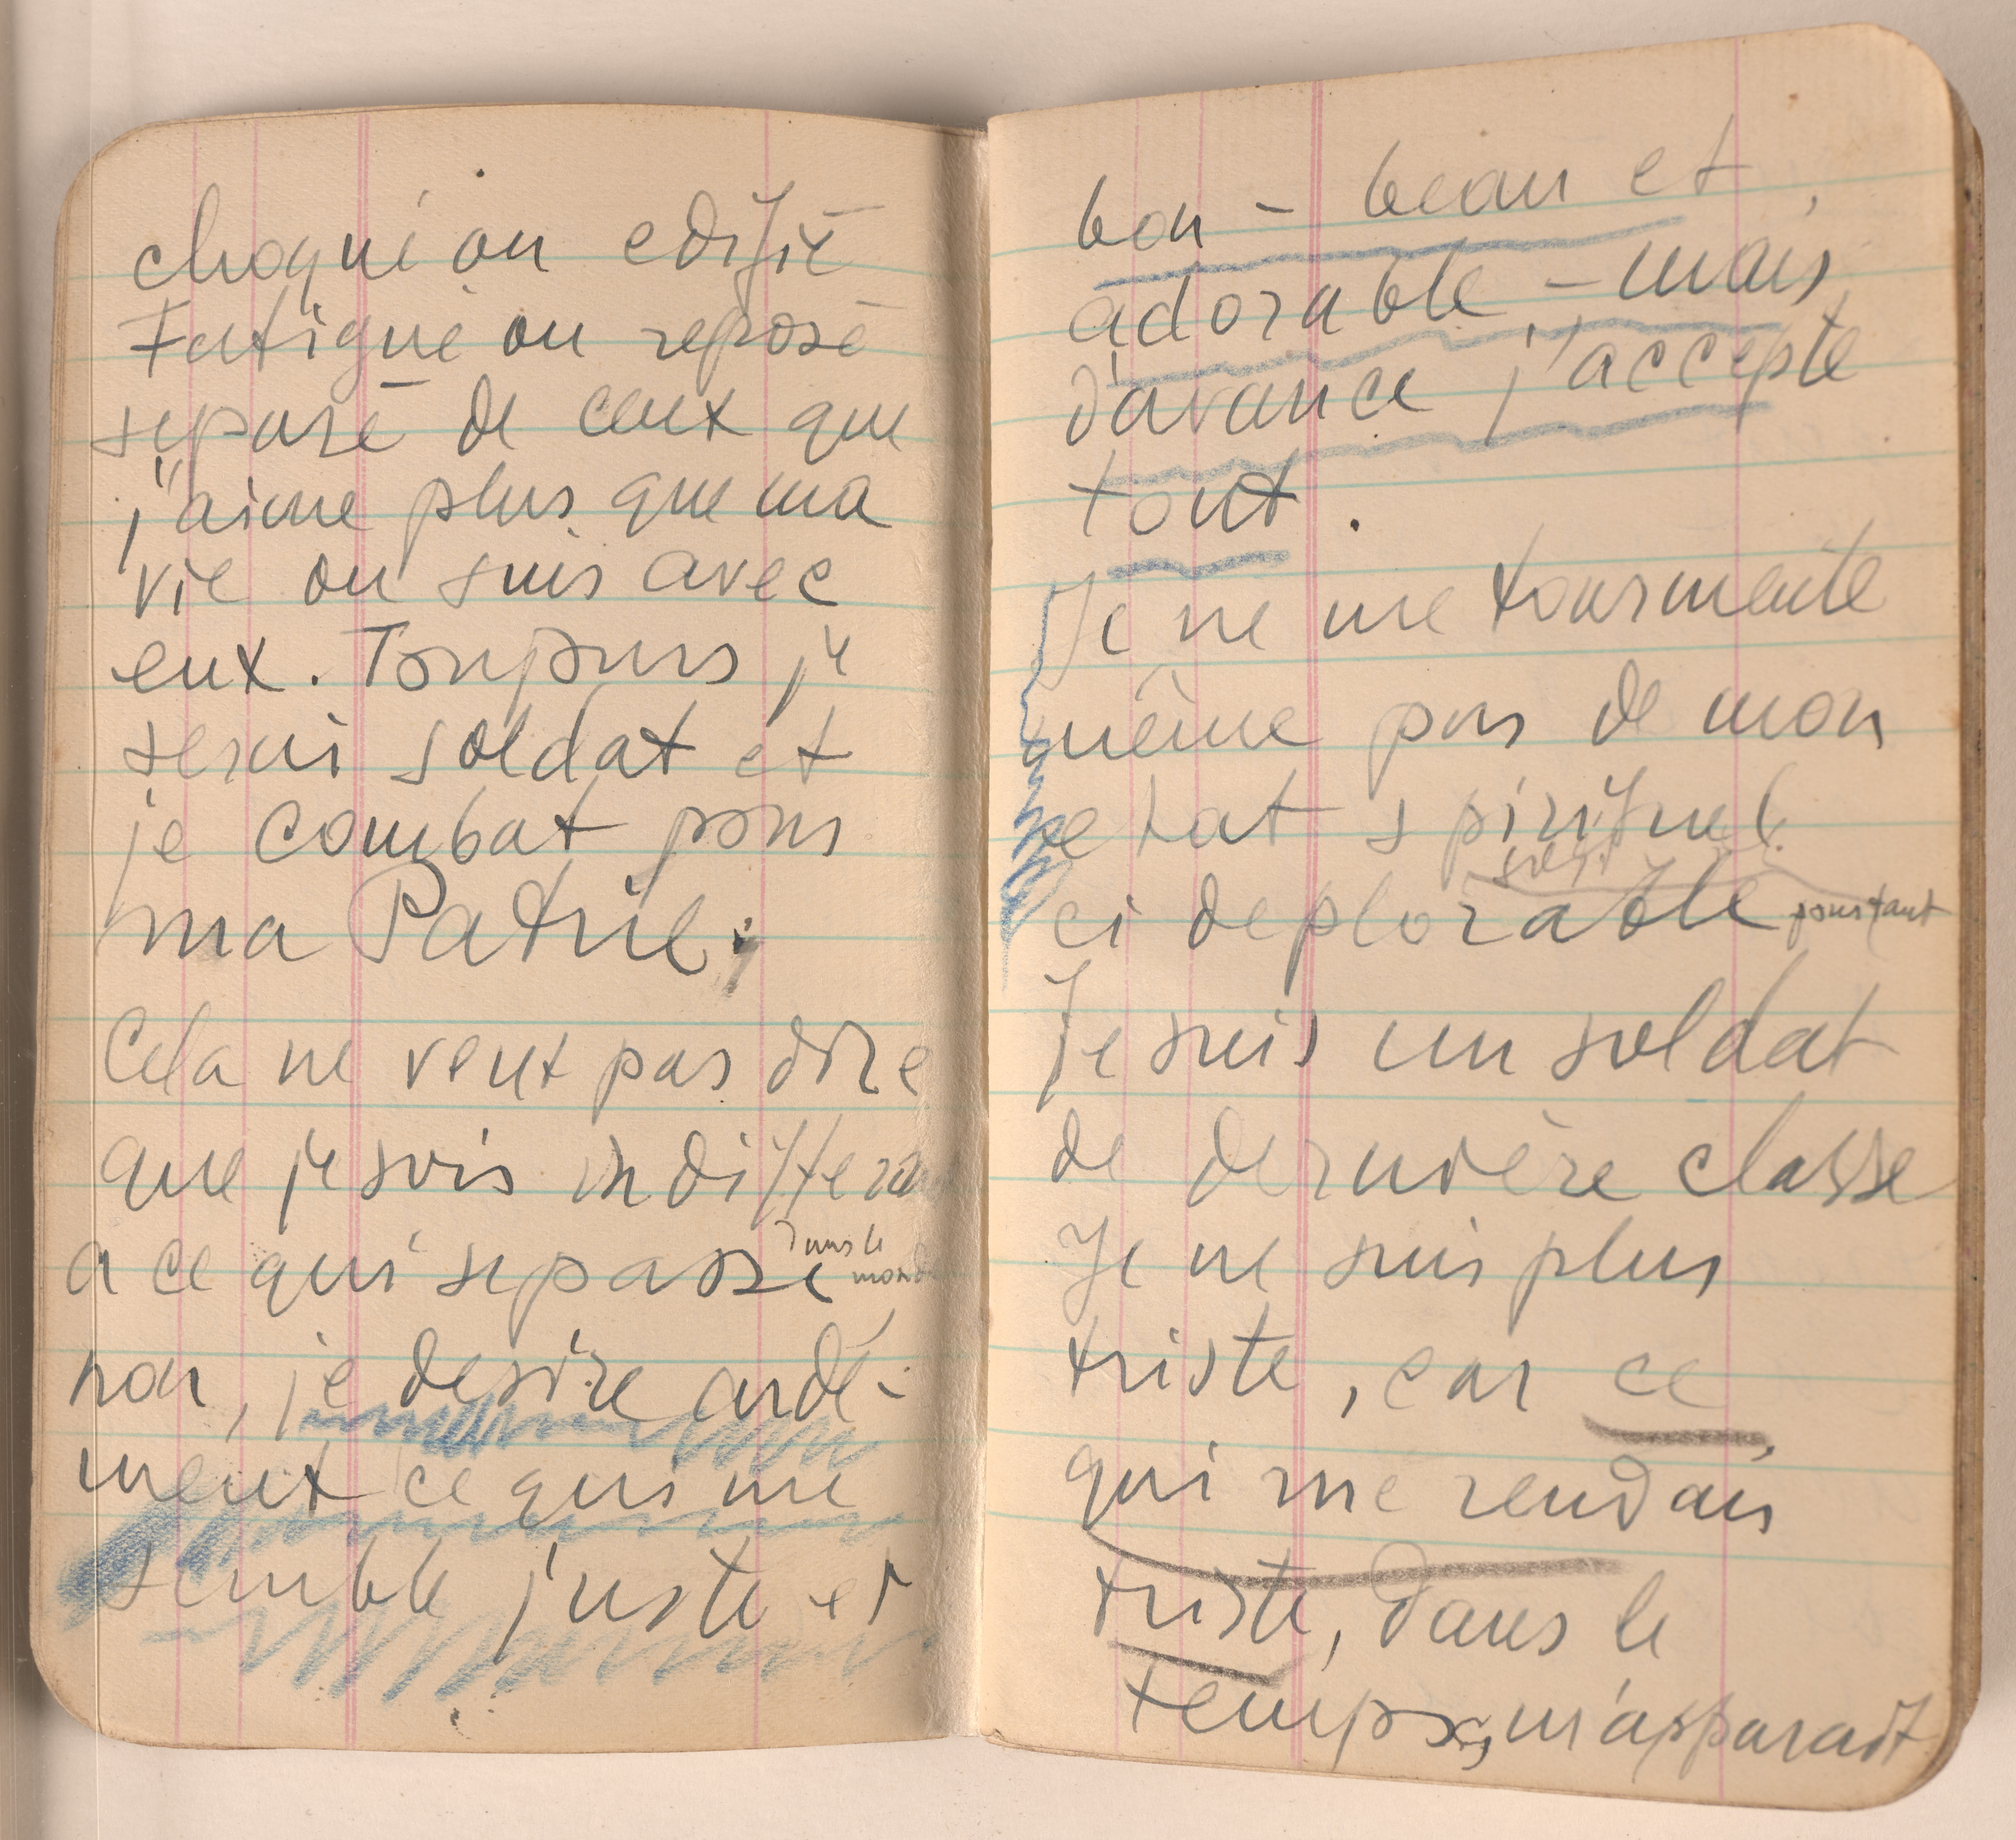 choqué ou edifié
Fatigué ou reposé
separé de ceux que
j'aime plus que ma
vie ou suis avec
eux. Toujours je
serai soldat et
je combat pour
ma Patrie.
Cela ne veut pas dire
que je sois indifferent
a ce qui se passe dans le monde
non, je desire ardé-
ment ce qui me
semble juste et
bon - beau et
adorable - mais
d'avance j'accepte
tout.
Je ne me tourmente
même pas de mon
etat spirituel
si deplorable soit pourtant
Je suis un soldat
de dernière classe
Je ne suis plus
triste, car ce
qui me rendais
triste, dans le
temps, m'apparait